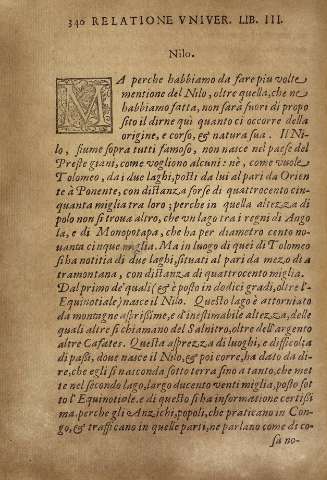 340 RELATIONE VNIVER. LIB. III.
Nilo.
MA perche habbiamo da fare piu volte
mentione del Nilo, oltre quella, che ne
habbiamo fatta, non sarà fuori di propo
sito il dirne quì quanto ci occorre della
origine, e corso, & natura sua. Il Ni-
lo, fiume sopra tutti famoso, non nasce nel paese del
Preste gianni, come vogliono alcuni: nè, come vuole
Tolomeo, da i due laghi, posti da lui al pari da Orien
te à Ponente, con distanza forse di quattrocento cin
quanta miglia tra loro; perche in quella altezza di
polo non si troua altro, che vn lago tra i regni di Ango
la, e di Monopotapa, che ha per diametro cento no-
uanta cinque miglia. Ma in luogo di quei di Tolomeo
si ha notitia di due laghi, situati al pari da mezo dì a
tramontana, con distanza di quattrocento miglia.
Dal primo de' quali (& è posto in dodici gradi, oltre l'
Equinotiale) nasce il Nilo. Questo lago è attorniato
da montagne asprissime, e d'inestimabile altezza, delle
quali altre si chiamano del Salnitro, oltre dell'argento
altre Cafates. Questa asprezza di luoghi, e difficoltà
di passi, doue nasce il Nilo, & poi corre, ha dato da di-
re, che egli si nasconda sotto terra sino a tanto, che met
te nel secondo lago, largo ducento venti miglia, posto sot
to l'Equinottiale. e di questo si ha informatione certissi
ma, perche gli Anzichi, popoli, che praticano in Con
go, & trafficano in quelle parti, ne parlano come di co-
sa no-